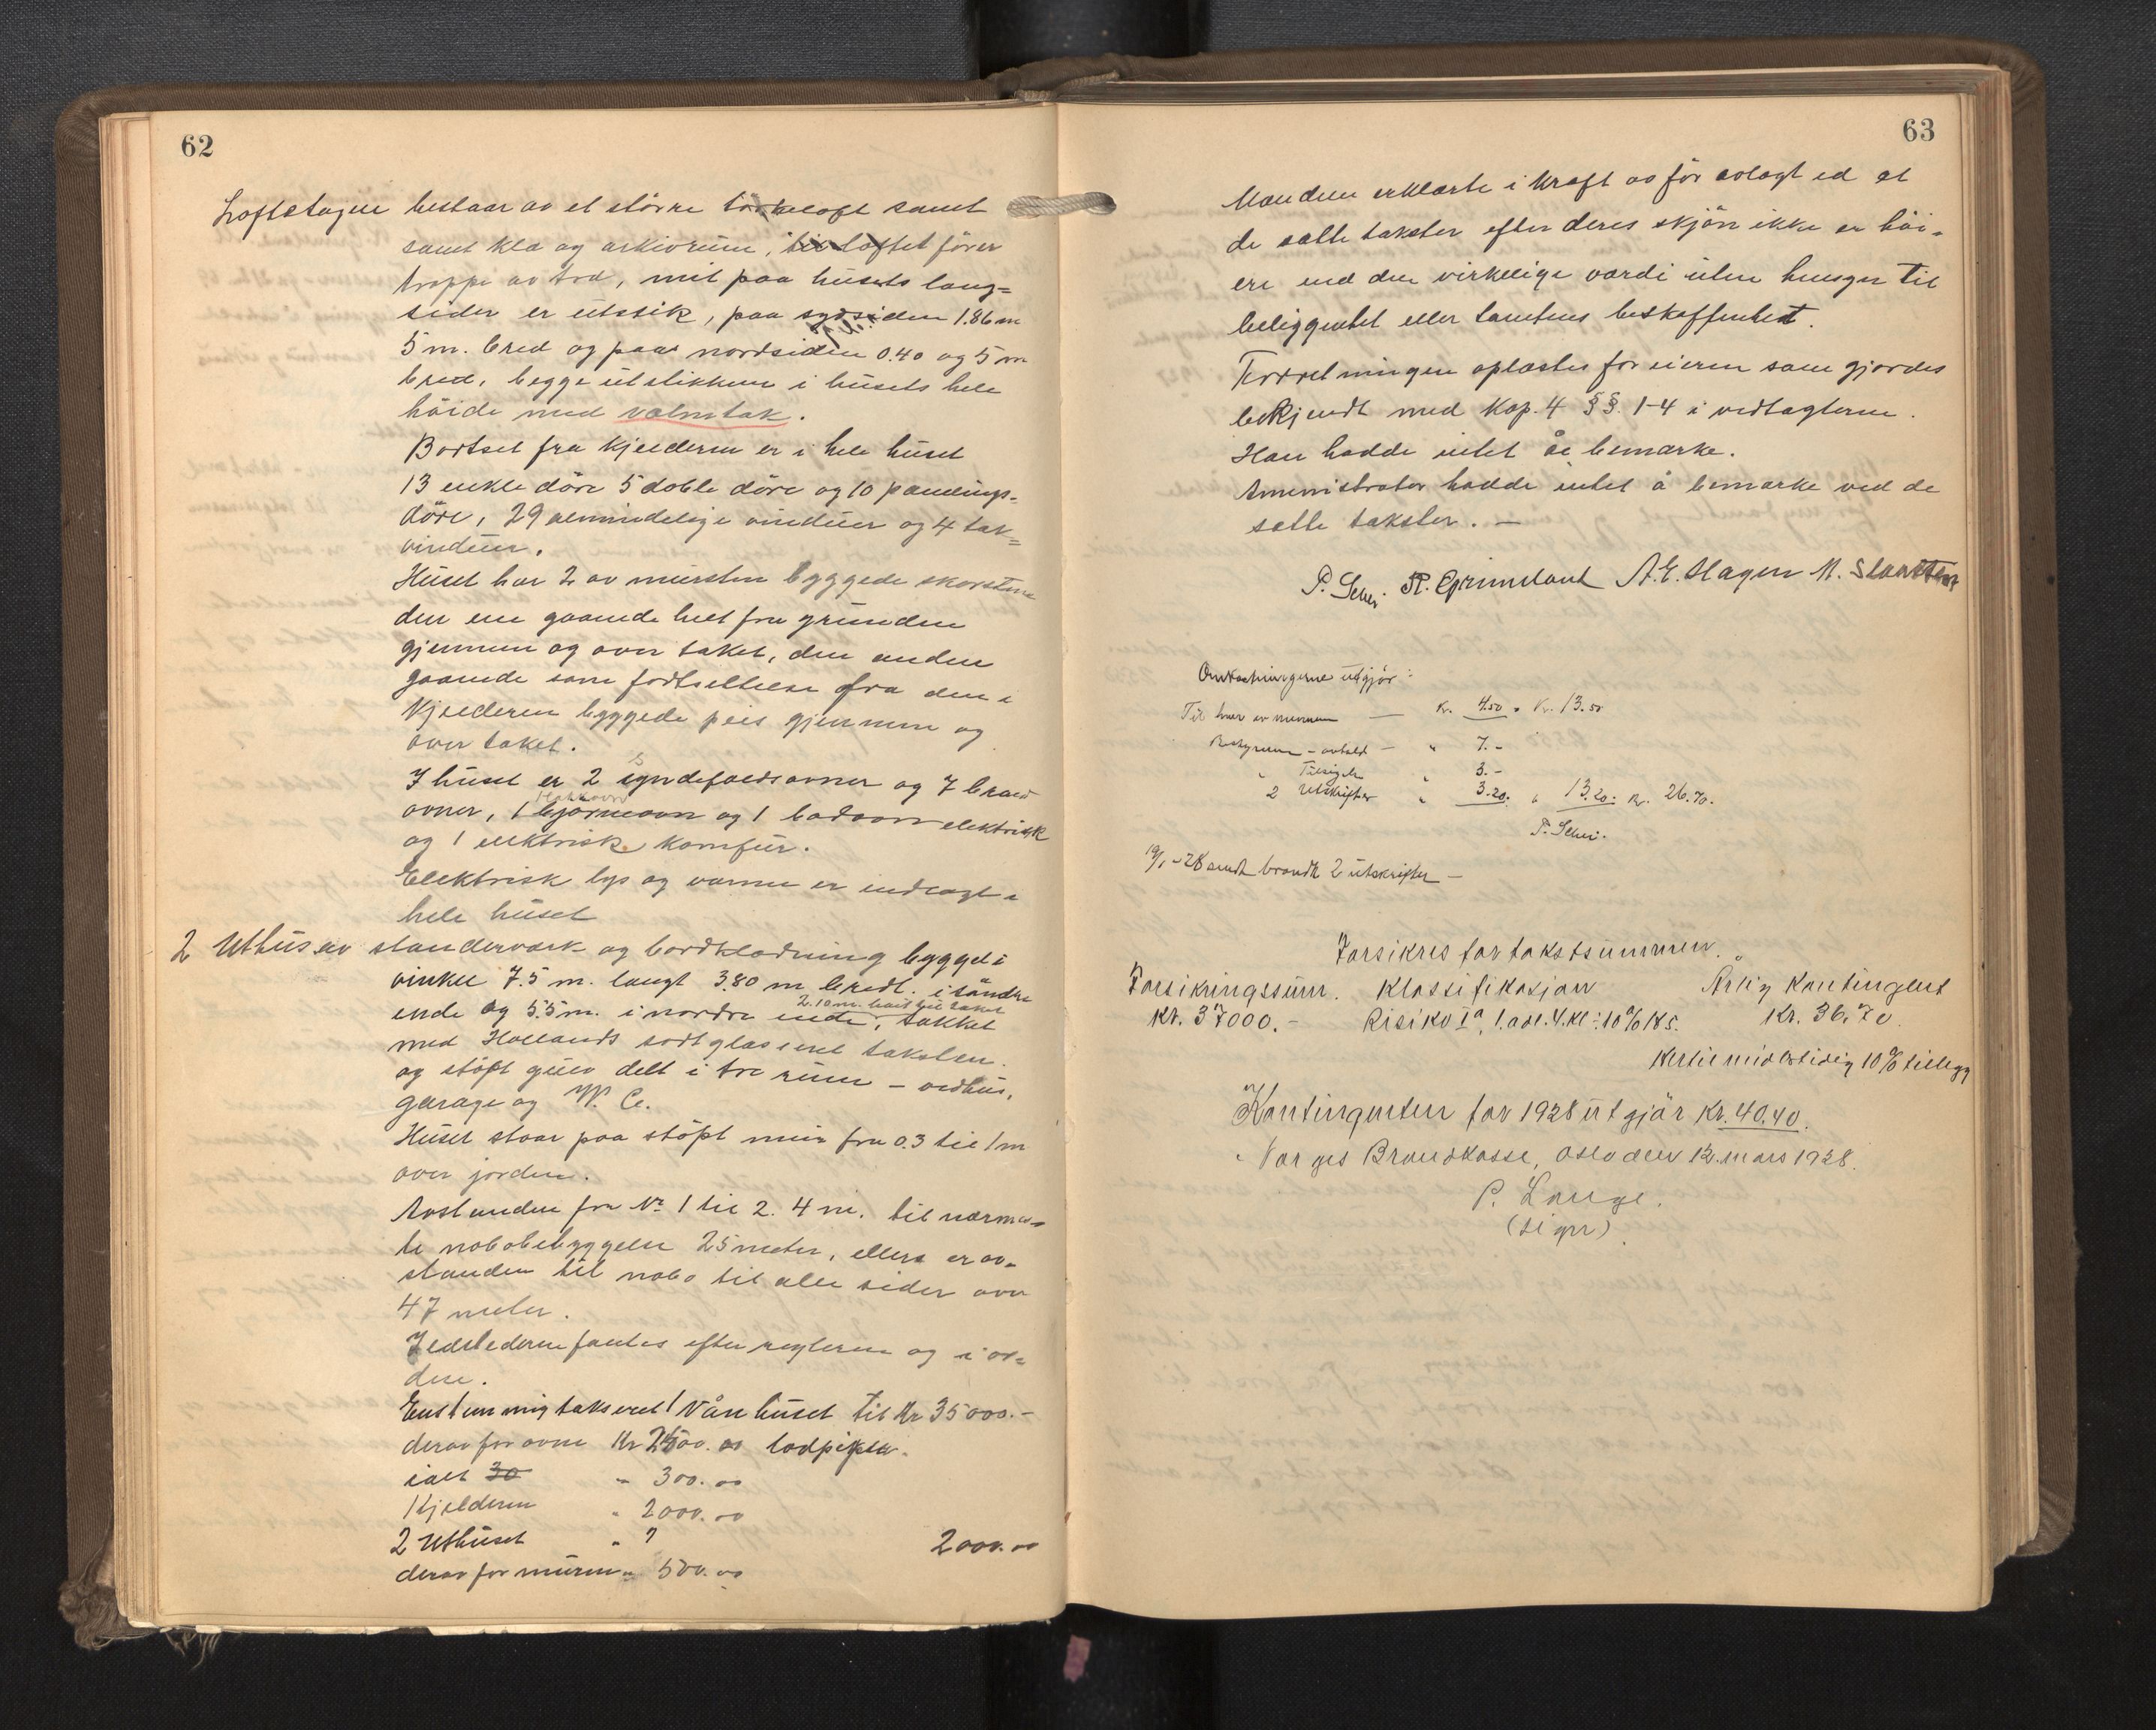 62
Loftstagen bestaar av et större törkeloft samt
samt kla og arkivrum, til loftet förer
trappe av træ, mit paa husets lang=
sider er utstik, paa sydsiden 1.86 m
5 m. bred og paa nordsiden 0.40 og 5 m
bred, begge utstikkene i husets hele
höide med valmtak.
Bortset fra kjelderen er i hele huset
13 enkle döre 5 doble döre og 10 pandings=
döre, 29 almindelige vinduer og 4 tak=
vinduer.
Huset har 2 av mursten byggede skorstene
den ene gaaende helt fra grunden
gjennem og over taket, den anden
gaaende som fortsettelse fra den i
Kjelderen byggede peis gjennem og
over taket.
I huset er 2 syndefaldsovner og 7 brand
ovner, 1 bjørneovn og 1 badeovn elektrisk
og 1 elektrisk komfur.
Elektrisk lys og varme er indlagt i
hele huset
2 Uthus av standerverk og bordklædning bygget i
vinkel 7.5 m. langt 3.80 m bredt. i söndre
2.10 m. høit til taket
ende og 5.5 m. i nordre ende, takket
med Hollands sortglaseret taksten.
og stöpt gulv delt i tre rum – vedhus,
garage og W. C.
Huset staar paa stöpt mur fra 0.3 til 1 m
over jorden.
Avstanden fra No 1 til 2. 4 m. til nærmes=
te nabobebyggelse 25 meter, ellers er av=
standen til nabo til alle sider over
47 meter.
Ildstederne fantes efter reglerne og i or=
den.
Enstemmig taksert 1 Vånhuset til Kr 35000.-
derav for ovne Kr 2500.00 lodpiper
ialt 30 " 300.00
Kjelderen " 2000.00
2 Uthuset " ? 2000.00
derav for muren " 500.00
63
Mændene erklærte i kraft av før avlagt ed at
de satte takster efter deres skjön ikke er höi=
ere end den virkelige værdi uten hensyn til
beliggenhet eller tomtens beskaffenhet.
Forretningen oplæstes for eieren som gjordes
bekjendt med Kap. 4 §§. 1-4 i vedtægterne.
Han hadde intet å bemærke.
Aministrator hadde intet å bemærke ved de
satte takster. –
P. Schei. R. Grimeland A. E. Hagen M.
Omkostningerne utgjör:
Til hver av mennene — Kr. 4.50 = Kr. 13.50
Bestyreren – avhold – " 7.-
" Tilsigelse " 3.-
2 Utskrifter " 3.20. " 13.20: Kr. 26.70.
P. Schei.
19/1 -28 sendt brandk 2 utskrifter –
Forsikres for takstsummen.
Forsikringssum. Klassifikasjon Årlig Kontingent
Kr. 37000.- Risiko Ia, 1. avd. 4. kl ÷ 10% § 5. Kr. 36.70.
Hertil midlertidig 10% tillegg
Kontingenten for 1928 utgjör Kr. 40.40.
Norges Brandkasse, Oslo den 12. mars 1928.
P. Lange.
(sign)